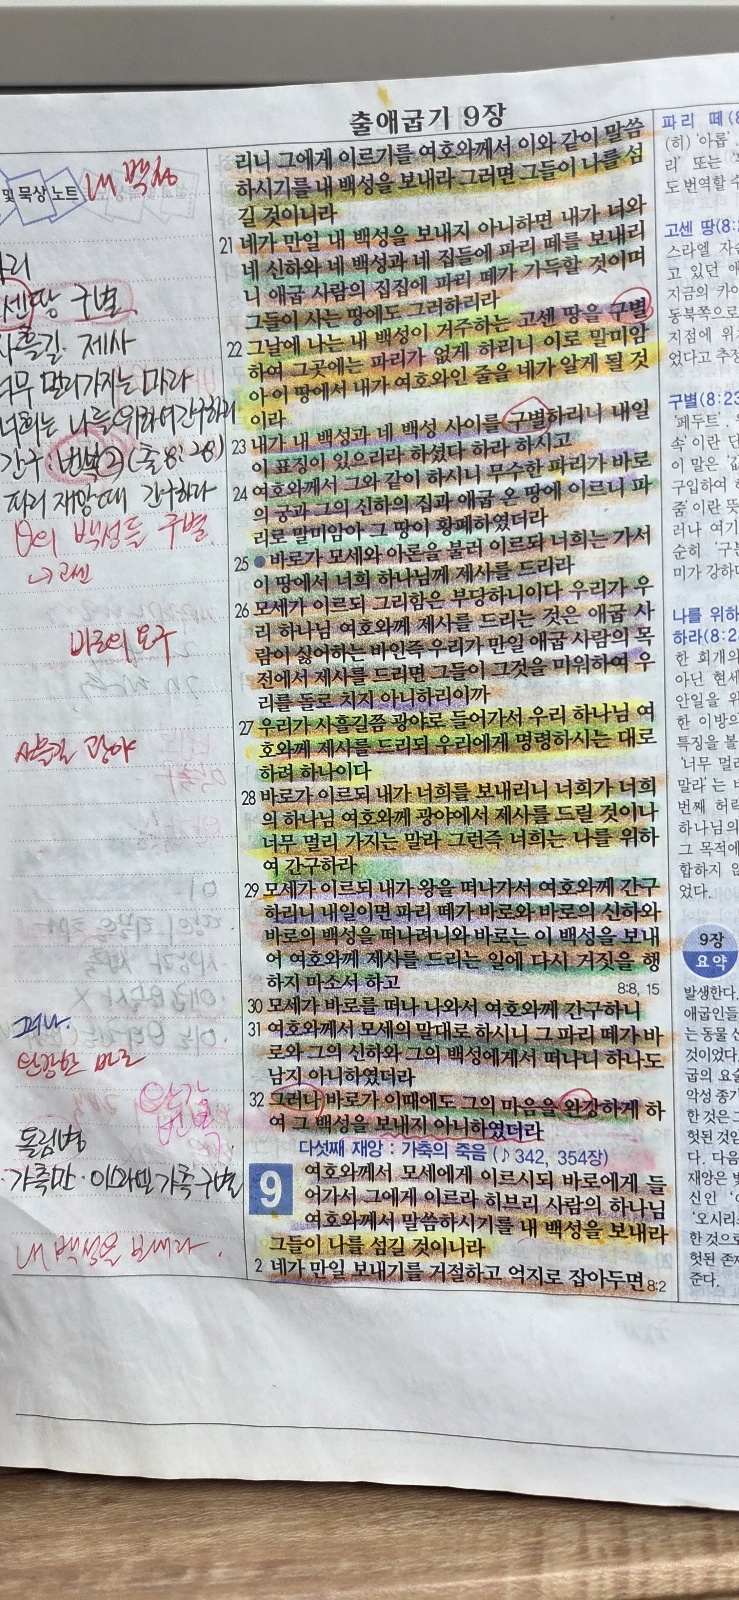 출애굽기 9장
및 묵상 노트
내 백성
땅 구별
사흘길 제사
너무 멀리가지는 마라
너희는 나를 위하여 간구하라
간구 : 번복② (출8:28)
파리 재앙때 간구하다
의 백성들 구별
↳ 고센
바로의 요구
사흘길 광야
그러나.
완강한 바로
완강
번복
돌림병
가축만 · 이스라엘 가축 구별
내 백성을 보내라.
리니 그에게 이르기를 여호와께서 이와 같이 말씀
하시기를 내 백성을 보내라 그러면 그들이 나를 섬
길 것이니라
21 네가 만일 내 백성을 보내지 아니하면 내가 너와
네 신하와 네 백성과 네 집들에 파리 떼를 보내리
니 애굽 사람의 집집에 파리 떼가 가득할 것이며
그들이 사는 땅에도 그러하리라
22 그날에 나는 내 백성이 거주하는 고센 땅을 구별
하여 그곳에는 파리가 없게 하리니 이로 말미암
아 이 땅에서 내가 여호와인 줄을 네가 알게 될 것
이라
23 내가 내 백성과 네 백성 사이를 구별하리니 내일
이 표징이 있으리라 하셨다 하라 하시고
24 여호와께서 그와 같이 하시니 무수한 파리가 바로
의 궁과 그의 신하의 집과 애굽 온 땅에 이르니 파
리로 말미암아 그 땅이 황폐하였더라
25 ●바로가 모세와 아론을 불러 이르되 너희는 가서
이 땅에서 너희 하나님께 제사를 드리라
26 모세가 이르되 그리함은 부당하니이다 우리가 우
리 하나님 여호와께 제사를 드리는 것은 애굽 사
람이 싫어하는 바인즉 우리가 만일 애굽 사람의 목
전에서 제사를 드리면 그들이 그것을 미워하여 우
리를 돌로 치지 아니하리이까
27 우리가 사흘길쯤 광야로 들어가서 우리 하나님 여
호와께 제사를 드리되 우리에게 명령하시는 대로
하려 하나이다
28 바로가 이르되 내가 너희를 보내리니 너희가 너희
의 하나님 여호와께 광야에서 제사를 드릴 것이나
너무 멀리 가지는 말라 그런즉 너희는 나를 위하
여 간구하라
29 모세가 이르되 내가 왕을 떠나가서 여호와께 간구
하리니 내일이면 파리 떼가 바로와 바로의 신하와
바로의 백성을 떠나려니와 바로는 이 백성을 보내
어 여호와께 제사를 드리는 일에 다시 거짓을 행
하지 마소서 하고 8:8, 15
30 모세가 바로를 떠나 나와서 여호와께 간구하니
31 여호와께서 모세의 말대로 하시니 그 파리 떼가 바
로와 그의 신하와 그의 백성에게서 떠나니 하나도
남지 아니하였더라
32 그러나 바로가 이때에도 그의 마음을 완강하게 하
여 그 백성을 보내지 아니하였더라
다섯째 재앙 : 가축의 죽음 (♪ 342, 354장)
9 여호와께서 모세에게 이르시되 바로에게 들
어가서 그에게 이르라 히브리 사람의 하나님
여호와께서 말씀하시기를 내 백성을 보내라
그들이 나를 섬길 것이니라
2 네가 만일 보내기를 거절하고 억지로 잡아두면 8:2
파리 떼(8
(히) '아롭'.
리' 또는
도 번역할 수
고센 땅(8:
스라엘 자
고 있던
지금의 카이
동북쪽으로
지점에 위
었다고 추정
구별(8:23
'페두트'.
속'이란 단
이 말은
구입하여
줌'이란 뜻
러나 여기
순히 '구
미가 강하다
나를 위하
하라(8:2
한 회개의
아닌 현세
안일을 위
한 이방의
특징을 볼
'너무 멀리
말라'는 바
번째 허락
하나님의
그 목적에
합하지 않
었다.
9장
요약
발생한다.
애굽인들
는 동물 신
것이었다.
굽의 요술
악성 종기
한 것은 그
헛된 것임
다. 다음
재앙은 빛
신인
'오시리스
한 것으로
헛된 존재
준다.